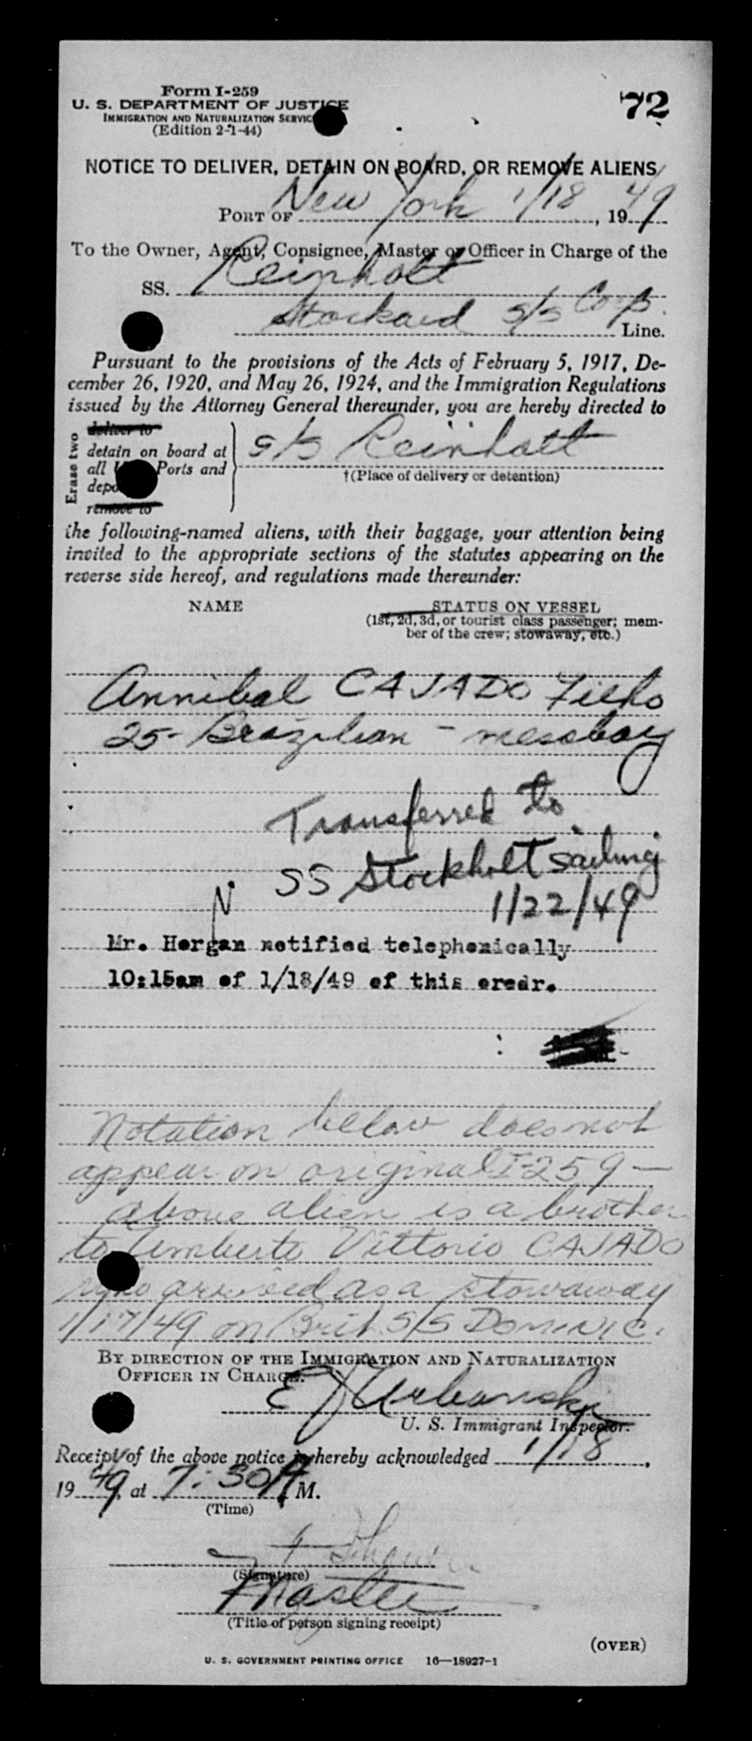 Form I-259
72
U. S. DEPARTMENT OF JUSTICE
IMMIGRATION AND NATURALIZATION SERVIC
(Edition 2-1-44)
NOTICE TO DELIVER, DETAIN ON BOARD, OR REMOVE ALIENS
PORT OF New York 1/18, 1949
To the Owner, Agent, Consignee, Master or Officer in Charge of the
SS. Reinholt
Stockard S/S Corp. Line.
Pursuant to the provisions of the Acts of February 5, 1917, De-
cember 26, 1920, and May 26, 1924, and the Immigration Regulations
issued by the Attorney General thereunder, you are hereby directed to
Erase two
deliver to
detain on board at
all Ports and
depo
remove to
S/S Reinholt
†(Place of delivery or detention)
the following-named aliens, with their baggage, your attention being
invited to the appropriate sections of the statutes appearing on the
reverse side hereof, and regulations made thereunder:
NAME STATUS ON VESSEL
(1st, 2d, 3d, or tourist class passenger; mem-
ber of the crew; stowaway, etc.)
Annibal CAJADO Filho
25- Brazilian - messboy
Transferred to
SS Stockholt sailing
1/22/49
N
Mr. Horgan notified telephonically
10:15am of 1/18/49 of this oredr.
Notation below does not
appear on original I-259 —
above alien is a brother
to Umberto Vittorio CAJADO
who arrived as a stowaway
1/17/49 on Brit. S/S DOMINIC.
BY DIRECTION OF THE IMMIGRATION AND NATURALIZATION
OFFICER IN CHARGE.
E J Urbanski
U. S. Immigrant Inspector.
Receipt of the above notice is hereby acknowledged 1/18,
1949, at 7:30 A M.
(Time)
(Signature)
Master
(Title of person signing receipt)
(OVER)
U. S. GOVERNMENT PRINTING OFFICE 16—18927-1